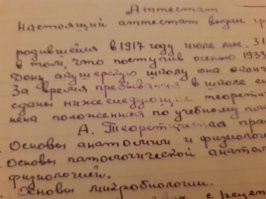 Аттестат
Настоящий аттестат выдан гр
родившейся в 1917 году июле мс. 31
в том, что поступив осенью 1933
Дону акушерскую школу она оконч
За время пребывания в школе ею
сданы нижеследующие теорети
чена положенная по учебному план
А. Теоретическая прак
Основы анатомии и физиологи
Основы патологической анатом
физиологии.
Основы микробиологии.
с рецепт